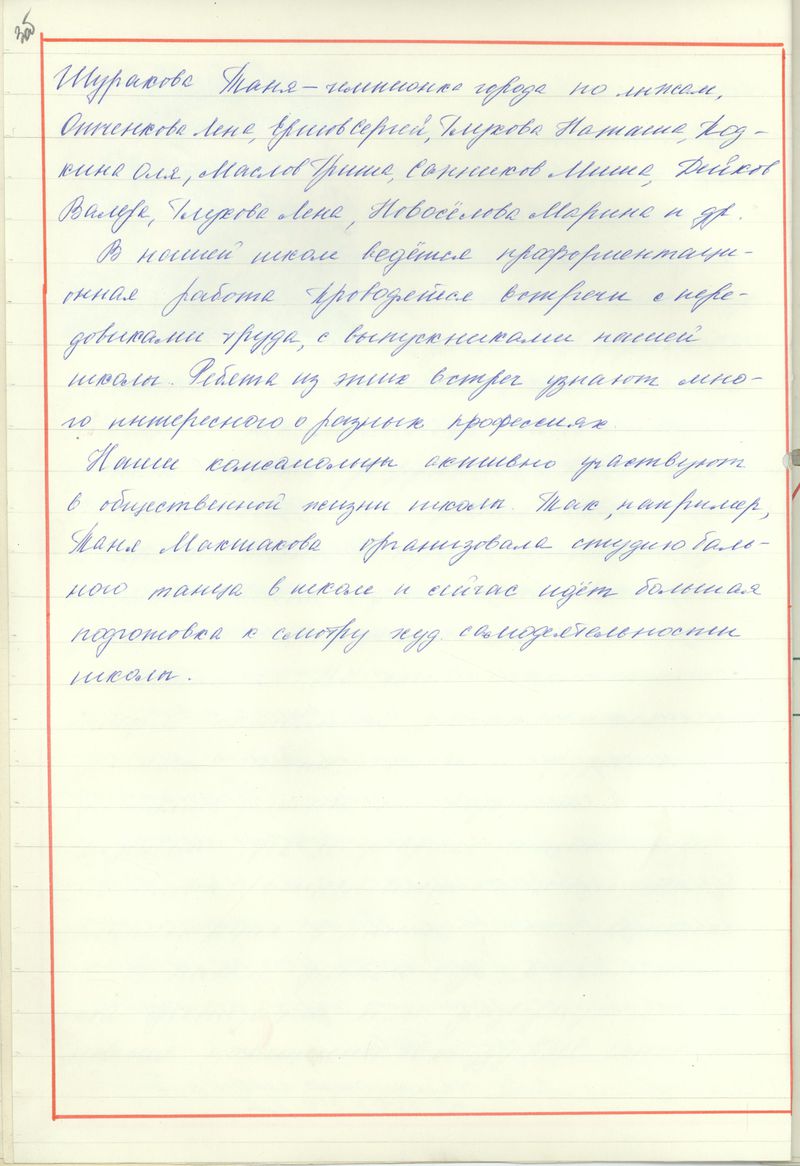 Шуракова Таня – чемпионка города по лыжам,
Отченкова Лена, Ершов Сергей, Глухова Наташа, Код-
кина Оля, Маслов Гриша, Санников Миша, Дейков
Валера, Глухова Лена, Новосёлова Марина и др.
В нашей школе ведётся профориентаци-
онная работа Проводятся встречи с пере-
довиками труда, с выпускниками нашей
школы. Ребята из этих встреч узнают мно-
го интересного о разных профессиях.
Наши комсомольцы активно участвуют
в общественной жизни школы. Так, например,
Таня Макшакова организовала студию баль-
ного танца в школе и сейчас идёт большая
подготовка к смотру худ. самодеятельности
школы.